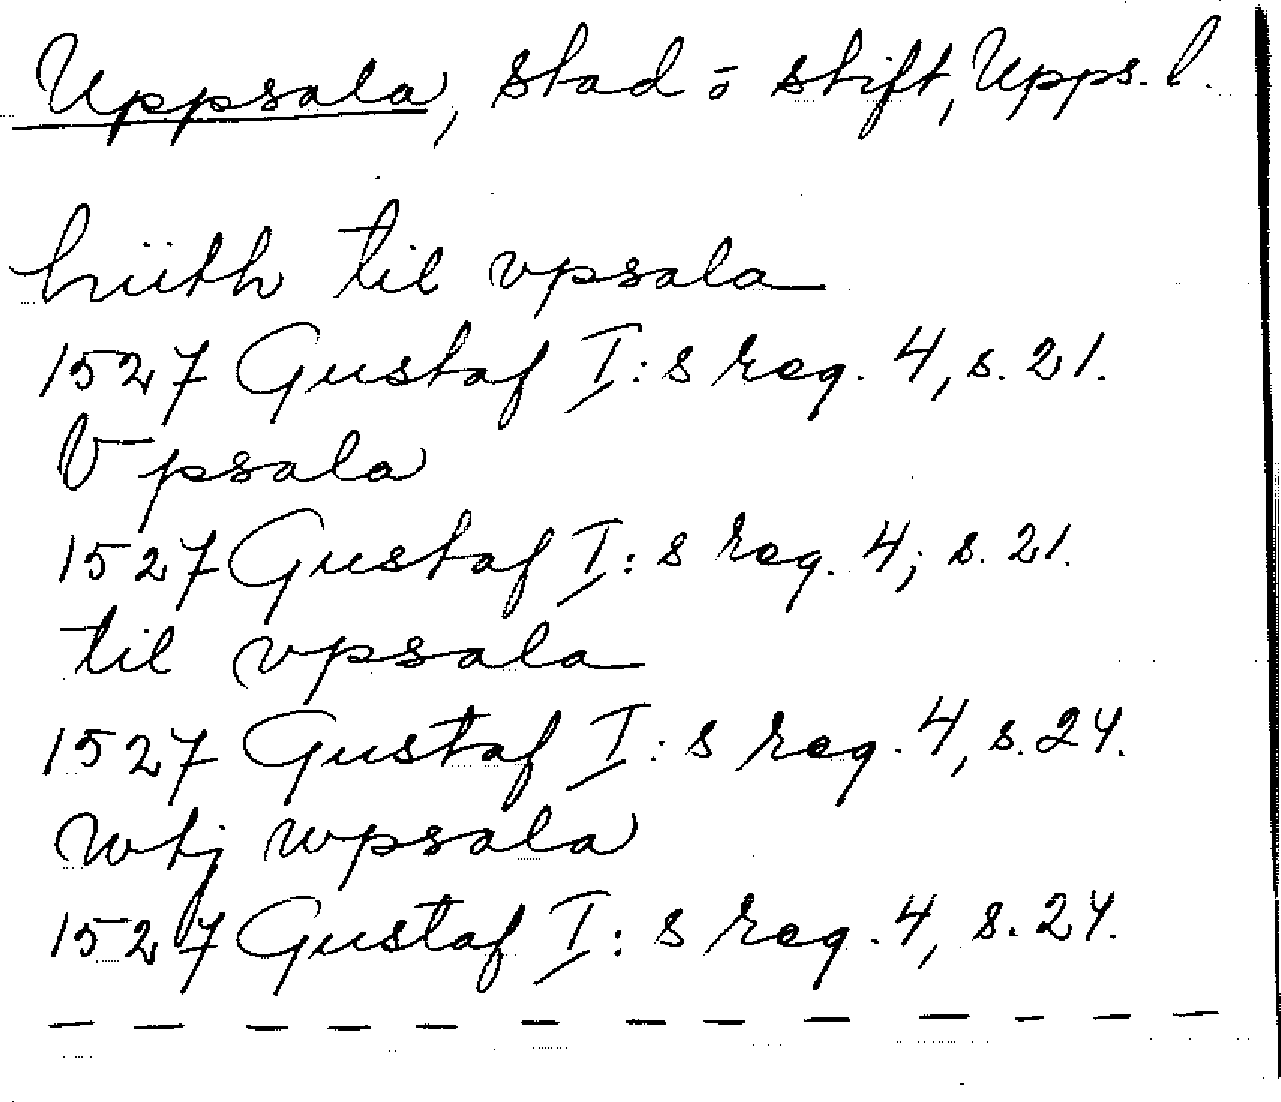 Uppsala, stad o stift, Upps. l.
hiith til vpsala
1527 Gustaf I:s reg. 4, s. 21.
Vpsala
1527 Gustaf I:s reg. 4, s. 21.
til vpsala
1527 Gustaf I:s reg. 4, s. 24.
wtj wpsala
1527 Gustaf I:s reg. 4, s. 24.